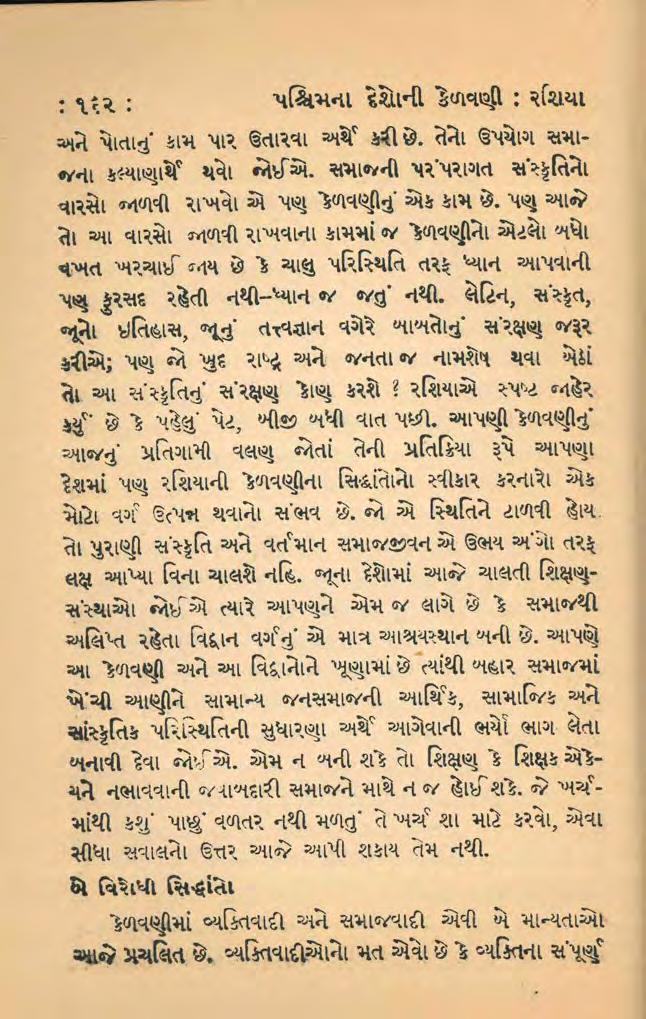 : ૧૬૨ : પશ્ચિમના દેશોની કેળવણી : રશિયા
અને પોતાનું કામ પાર ઉતારવા અર્થે કરી છે. તેનો ઉપયોગ સમા-
જના કલ્યાણાર્થે થવો જોઈએ. સમાજની પરંપરાગત સંસ્કૃતિનો
વારસો જાળવી રાખવો એ પણ કેળવણીનું એક કામ છે. પણ આજે
તો આ વારસો જાળવી રાખવાના કામમાં જ કેળવણીનો એટલો બધો
વખત ખરચાઈ જાય છે કે ચાલુ પરિસ્થિતિ તરફ ધ્યાન આપવાની
પણ ફુરસદ રહેતી નથી–ધ્યાન જ જતું નથી. લેટિન, સંસ્કૃત,
જૂનો ઇતિહાસ, જૂનું તત્ત્વજ્ઞાન વગેરે બાબતોનું સંરક્ષણ જરૂર
કરીએ; પણ જો ખુદ રાષ્ટ્ર અને જનતા જ નામશેષ થવા બેઠાં
તો આ સંસ્કૃતિનું સંરક્ષણ કોણ કરશે ? રશિયાએ સ્પષ્ટ જાહેર
કર્યું છે કે પહેલું પેટ, બીજી બધી વાત પછી. આપણી કેળવણીનું
આજનું પ્રતિગામી વલણ જોતાં તેની પ્રતિક્રિયા રૂપે આપણા
દેશમાં પણ રશિયાની કેળવણીના સિદ્ધાંતોનો સ્વીકાર કરનારો એક
મોટો વર્ગ ઉત્પન્ન થવાનો સંભવ છે. જો એ સ્થિતિને ટાળવી હોય
તો પુરાણી સંસ્કૃતિ અને વર્તમાન સમાજજીવન એ ઉભય અંગો તરફ
લક્ષ આપ્યા વિના ચાલશે નહિ. જૂના દેશોમાં આજે ચાલતી શિક્ષણ-
સંસ્થાઓ જોઈએ ત્યારે આપણને એમ જ લાગે છે કે સમાજથી
અલિપ્ત રહેતા વિદ્વાન વર્ગનું એ માત્ર આશ્રયસ્થાન બની છે. આપણે
આ કેળવણી અને આ વિદ્વાનોને ખૂણામાં છે ત્યાંથી બહાર સમાજમાં
ખેંચી આણીને સામાન્ય જનસમાજની આર્થિક, સામાજિક અને
સાંસ્કૃતિક પરિસ્થિતિની સુધારણા અર્થે આગેવાની ભર્યો ભાગ લેતા
બનાવી દેવા જોઈએ. એમ ન બની શકે તો શિક્ષણ કે શિક્ષક એકે-
યને નભાવવાની જવાબદારી સમાજને માથે ન જ હોઈ શકે. જે ખર્ચ-
માંથી કશું પાછું વળતર નથી મળતું તે ખર્ચ શા માટે કરવો, એવા
સીધા સવાલનો ઉત્તર આજે આપી શકાય તેમ નથી.
બે વિરોધી સિદ્ધાંતો
કેળવણીમાં વ્યક્તિવાદી અને સમાજવાદી એવી બે માન્યતાઓ
આજે પ્રચલિત છે. વ્યક્તિવાદીઓનો મત એવો છે કે વ્યક્તિના સંપૂર્ણ